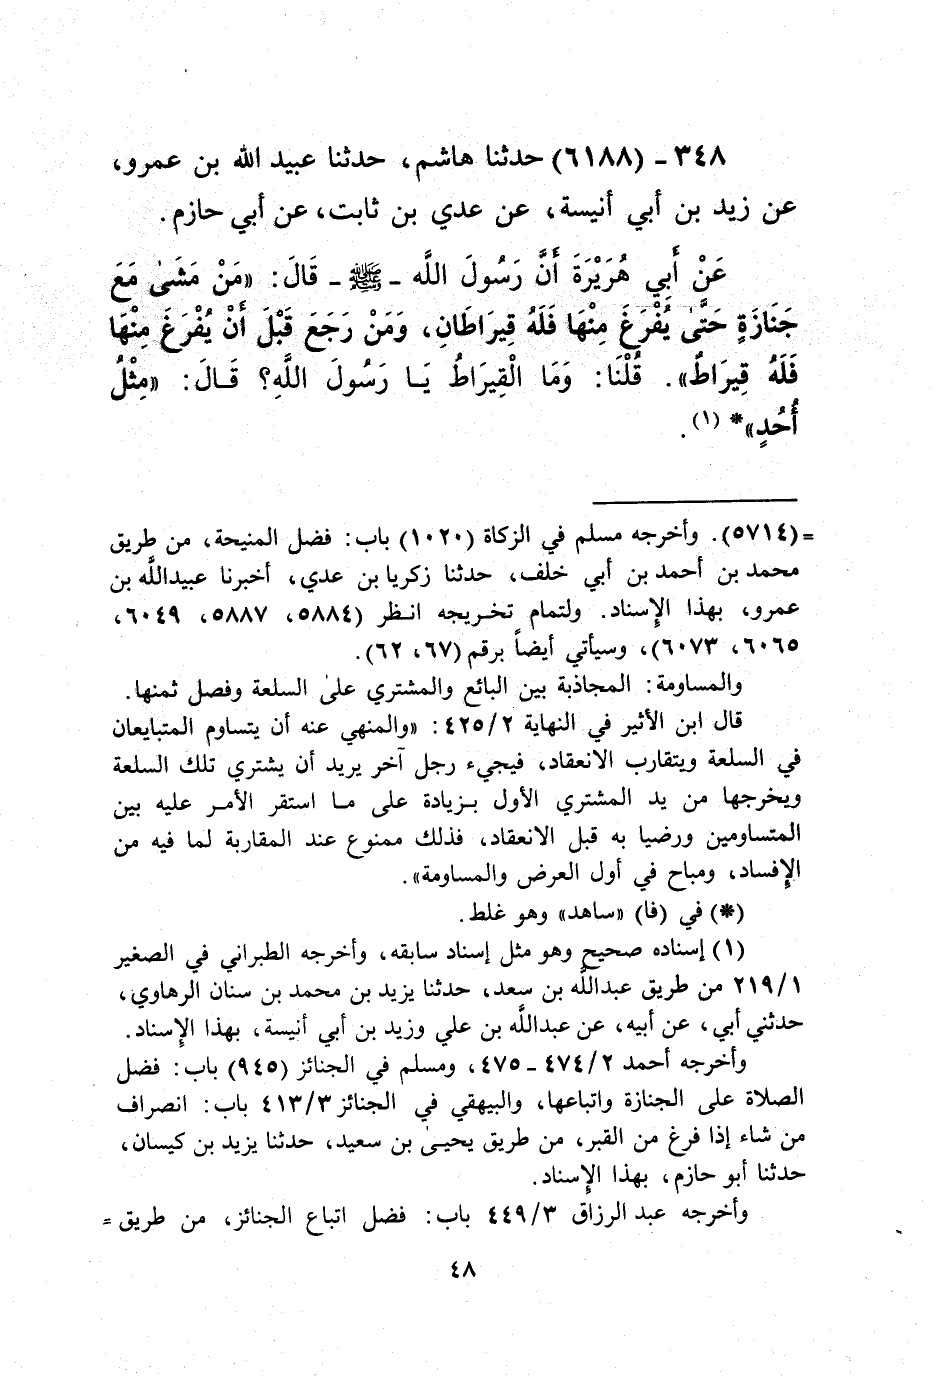 ٣٤٨ - (٦١٨٨) حدثنا هاشم، حدثنا عبيد الله بن عمرو،
عن زيد بن أبي أنيسة، عن عدي بن ثابت، عن أبي حازم.
عَنْ أَبِي هُرَيْرَةَ أَنَّ رَسُولَ اللَّه - ﷺ - قَالَ: «مَنْ مَشَىٰ مَعَ
جَنَازَةٍ حَتَّىٰ يُفْرَغَ مِنْهَا فَلَهُ قِيرَاطَانِ، وَمَنْ رَجَعَ قَبْلَ أَنْ يُفْرَغَ مِنْهَا
فَلَهُ قِيرَاطٌ». قُلْنَا: وَمَا الْقِيرَاطُ يَا رَسُولَ اللَّهِ؟ قَالَ: «مِثْلُ
أُحُدٍ»* (١).
= (٥٧١٤). وأخرجه مسلم في الزكاة (١٠٢٠) باب: فضل المنيحة، من طريق
محمد بن أحمد بن أبي خلف، حدثنا زكريا بن عدي، أخبرنا عبيداللَّه بن
عمرو، بهذا الإسناد. ولتمام تخريجه انظر (٥٨٨٤، ٥٨٨٧، ٦٠٤٩،
٦٠٦٥، ٦٠٧٣)، وسيأتي أيضاً برقم (٦٧، ٦٢).
والمساومة: المجاذبة بين البائع والمشتري علىٰ السلعة وفصل ثمنها.
قال ابن الأثير في النهاية ٤٢٥/٢: «والمنهي عنه أن يتساوم المتبايعان
في السلعة ويتقارب الانعقاد، فيجيء رجل آخر يريد أن يشتري تلك السلعة
ويخرجها من يد المشتري الأول بزيادة على ما استقر الأمر عليه بين
المتساومين ورضيا به قبل الانعقاد، فذلك ممنوع عند المقاربة لما فيه من
الإفساد، ومباح في أول العرض والمساومة».
(*) في (فا) «ساهد» وهو غلط.
(١) إسناده صحيح وهو مثل إسناد سابقه، وأخرجه الطبراني في الصغير
٢١٩/١ من طريق عبداللَّه بن سعد، حدثنا يزيد بن محمد بن سنان الرهاوي،
حدثني أبي، عن أبيه، عن عبداللَّه بن علي وزيد بن أبي أنيسة، بهذا الإسناد.
وأخرجه أحمد ٤٧٤/٢ - ٤٧٥، ومسلم في الجنائز (٩٤٥) باب: فضل
الصلاة على الجنازة واتباعها، والبيهقي في الجنائز ٤١٣/٣ باب: انصراف
من شاء إذا فرغ من القبر، من طريق يحيىٰ بن سعيد، حدثنا يزيد بن كيسان،
حدثنا أبو حازم، بهذا الإسناد.
وأخرجه عبد الرزاق ٤٤٩/٣ باب: فضل اتباع الجنائز، من طريق =
٤٨